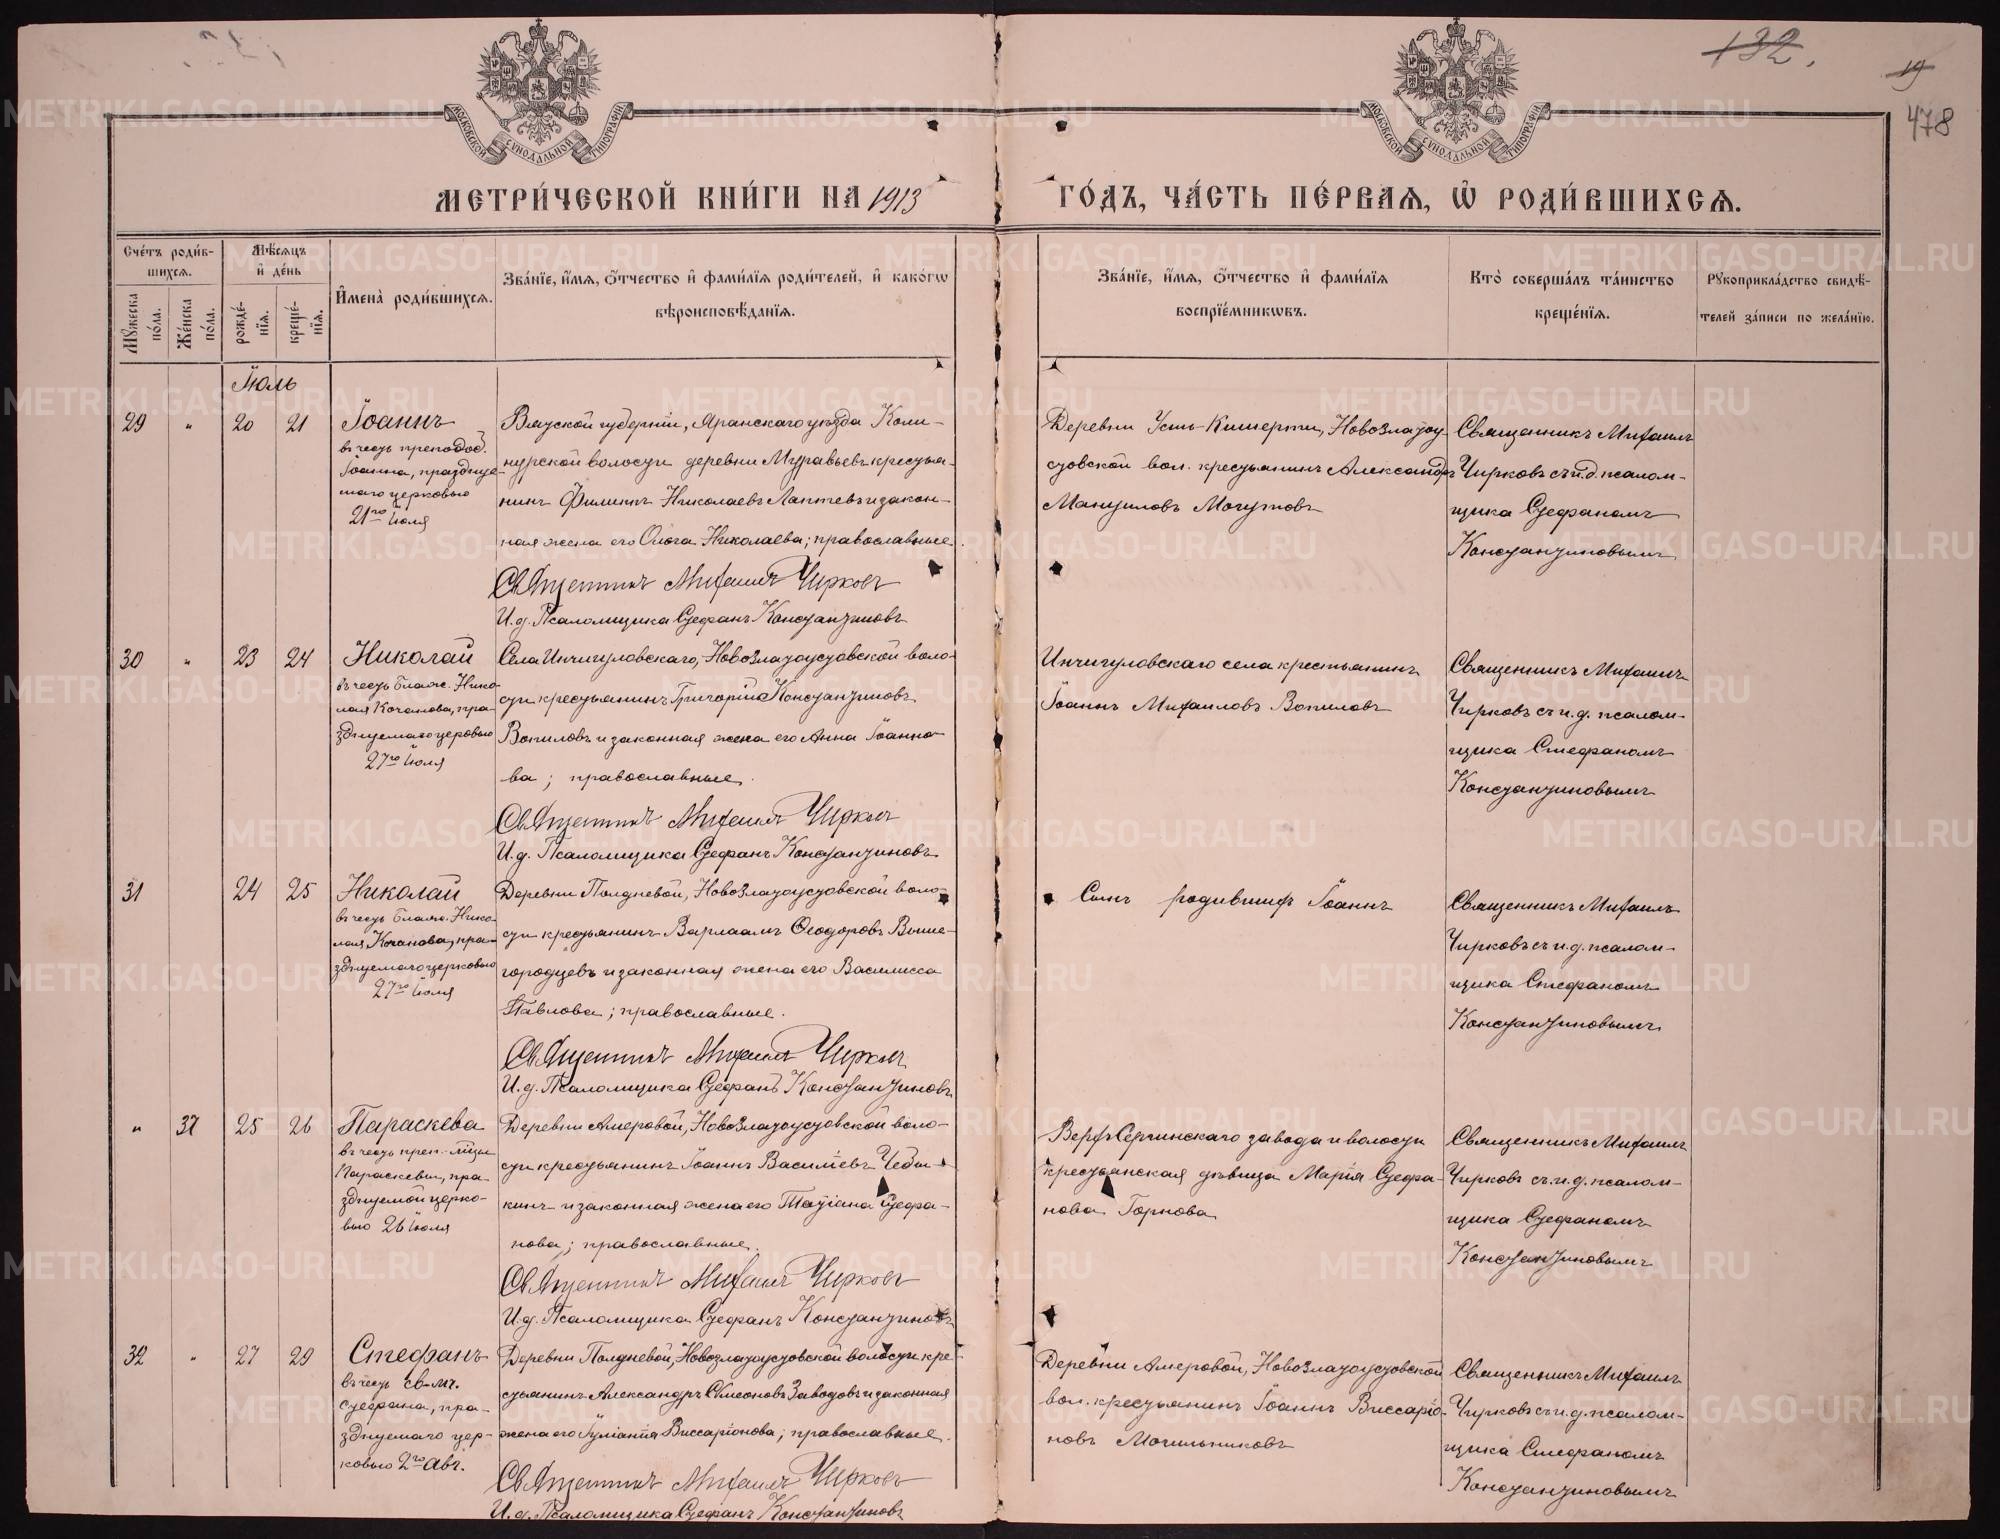 132.
19
478
МОСКОВСКОЙ СѴНОДАЛЬНОЙ ТИПОГРАФІИ
МОСКОВСКОЙ СѴНОДАЛЬНОЙ ТИПОГРАФІИ
МЕТРИ́ЧЕСКОЙ КНИ́ГИ НА 1913 ГО́ДЪ, ЧА́СТЬ ПЕ́РВАѦ, Ѽ РОДИ́ВШИХСѦ.
Сче́тъ роди́вшихсѧ.
Мꙋжеска по́ла.
Же́нска по́ла.
Мѣ́сѧцъ и҆ де́нь
рожде́нїѧ.
креще́нїѧ.
И҆мена̀ роди́вшихсѧ.
Зва́нїе, и҆́мѧ, ѻ҆́тчество и҆ фами́лїѧ роди́телей, и҆ како́гѡ
вѣроисповѣ́данїѧ.
Зва́нїе, и҆́мѧ, ѻ҆́тчество и҆ фами́лїѧ
воспрїе́мникѡвъ.
Кто̀ соверша́лъ та́инство
креще́нїѧ.
Рꙋкоприкла́дство свидѣ́-
телей за́писи по жела́нїю.
Іюль
29 " 20 21
Іоаннъ
въ честь преподоб.
Іоанна, празднуе-
маго церковью
21го Іюля
Вятской губерніи, Яранскаго уѣзда Коми-
нурской волости деревни Муравьевъ крестья-
нинъ Филиппъ Николаевъ Лаптевъ и закон-
ная жена его Ольга Николаева; православные.
Священникъ Михаилъ Чирковъ
И.д. Псаломщика Стефанъ Константиновъ
Деревни Усть-Кишерти, Новозлатоу-
стовской вол. крестьянинъ Александръ
Мануиловъ Могутовъ
Священникъ Михаилъ
Чирковъ съ и.д. псалом-
щика Стефаномъ
Константиновымъ
30 " 23 24
Николай
въ честь блаж. Нико-
лая Кочанова, пра-
зднуемаго церковью
27го Іюля
Села Инчигуловскаго, Новозлатоустовской воло-
сти крестьянинъ Григорій Константиновъ
Вопиловъ и законная жена его Анна Іоанно-
ва; православные.
Священникъ Михаилъ Чирковъ
И.д. Псаломщика Стефанъ Константиновъ
Инчигуловскаго села крестьянинъ
Іоаннъ Михаиловъ Вопиловъ
Священникъ Михаилъ
Чирковъ съ и.д. псалом-
щика Стефаномъ
Константиновымъ
31 24 25
Николай
въ честь блаж. Нико-
лая Кочанова, пра-
зднуемаго церковью
27го Іюля
Деревни Полдневой, Новозлатоустовской воло-
сти крестьянинъ Варлаамъ Ѳеодоровъ Выше-
городцевъ и законная жена его Василисса
Павлова; православные.
Священникъ Михаилъ Чирковъ
И.д. Псаломщика Стефанъ Константиновъ
Сынъ родившихъ Іоаннъ
Священникъ Михаилъ
Чирковъ съ и.д. псалом-
щика Стефаномъ
Константиновымъ
" 37 25 26
Параскева
въ честь преп.-м҃цы
Параскевы, пра-
зднуемой церко-
вью 26 Іюля
Деревни Амеровой, Новозлатоустовской воло-
сти крестьянинъ Іоаннъ Василіевъ Чебы-
кинъ и законная жена его Татіана Стефа-
нова; православные.
Священникъ Михаилъ Чирковъ
И.д. Псаломщика Стефанъ Константиновъ
Верхъ-Сергинскаго завода и волости
крестьянская дѣвица Марія Стефа-
нова Горнова
Священникъ Михаилъ
Чирковъ съ и.д. псалом-
щика Стефаномъ
Константиновымъ
32 " 27 29
Стефанъ
въ честь св.-мч.
Стефана, пра-
зднуемаго цер-
ковью 2го авг.
Деревни Полдневой, Новозлатоустовской волости кре-
стьянинъ Александръ Симеоновъ Заводовъ и законная
жена его Іуліанія Виссаріонова; православные.
Священникъ Михаилъ Чирковъ
И.д. Псаломщика Стефанъ Константиновъ
Деревни Амеровой, Новозлатоустовской
вол. крестьянинъ Іоаннъ Виссаріо-
новъ Могильниковъ
Священникъ Михаилъ
Чирковъ съ и.д. псалом-
щика Стефаномъ
Константиновымъ
METRIKI.GASO-URAL.RU